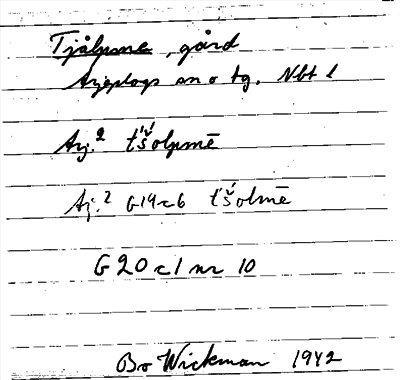 Tjålpme, gård
Arjeplogs sn o tg. Nbt l
Arj.² t'š́olpmē
Arj.² G19c6 t'š́olmē
G 20 c1 nr 10
Bo Wickman 1942